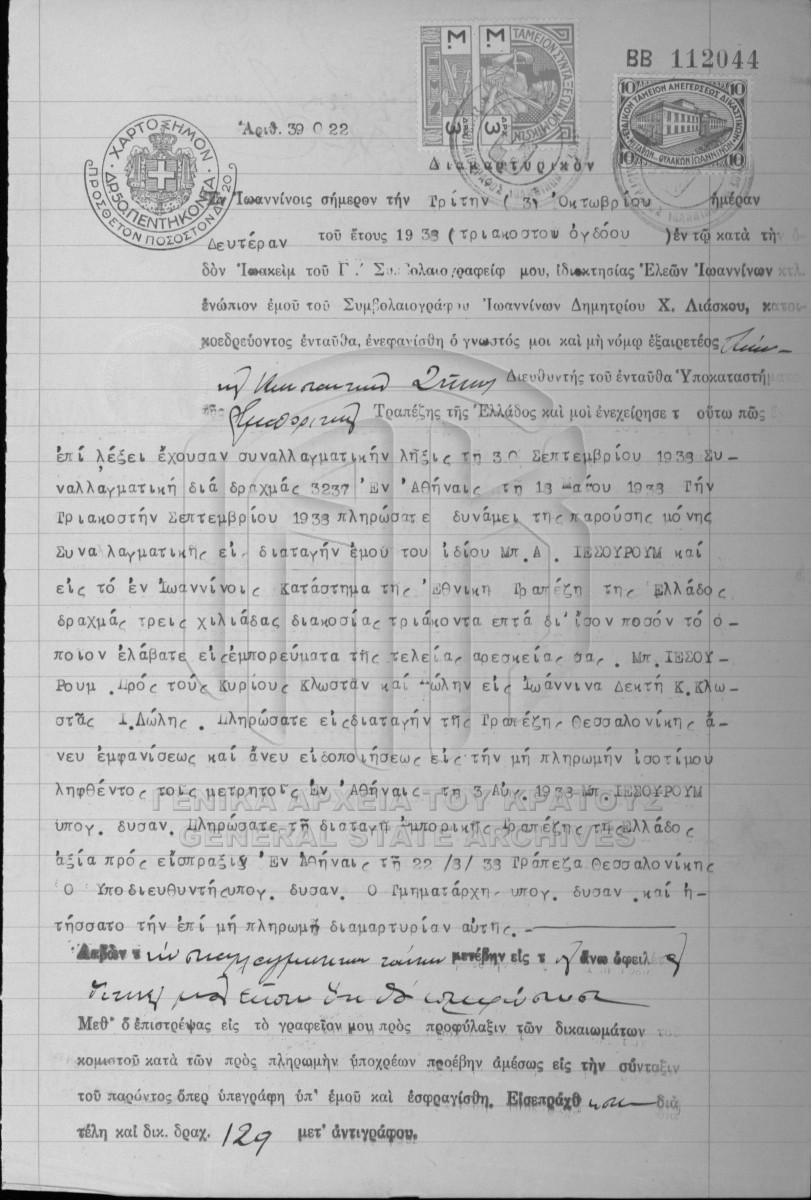 BB 112044
ΤΑΜΕΙΟΝ ΣΥΝΤΑΞΕΩΝ ΝΟΜΙΚΩΝ
Μ. 3 ΔΡΧ. Μ. 3
ΕΙΔΙΚΟΝ ΤΑΜΕΙΟΝ ΑΝΕΓΕΡΣΕΩΣ ΔΙΚΑΣΤΙΚΩΝ
ΜΕΓΑΡΩΝ ΦΥΛΑΚΩΝ ΙΩΑΝΝΙΝΩΝ
10 10 10 10
ΧΑΡΤΟΣΗΜΟΝ
ΔΡ 50 ΠΕΝΤΗΚΟΝΤΑ
ΠΡΟΣΘΕΤΟΝ ΠΟΣΟΣΤΟΝ ΔΡ 20
Ἀριθ. 39022
Διαμαρτυρικὸν
Ἐν Ἰωαννίνοις σήμερον τὴν Τρίτην (3) Ὀκτωβρίου ἡμέραν
Δευτέραν τοῦ ἔτους 1938 (τριακοστου ὀγδόου ) ἐν τῷ κατὰ τὴν ὁ-
δὸν Ἰωακεὶμ τοῦ Γ΄ Συμβολαιογραφείῳ μου, ἰδιοκτησίας Ἐλεῶν Ἰωαννίνων κτλ.
ἐνώπιον ἐμοῦ τοῦ Συμβολαιογράφου Ἰωαννίνων Δημητρίου Χ. Λιάσκου, κατοι-
κοεδρεύοντος ἐνταῦθα, ἐνεφανίσθη ὁ γνωστός μοι καὶ μὴ νόμῳ ἐξαιρετέος
Διευθυντὴς τοῦ ἐνταῦθα Ὑποκαταστήματος
τῆς Ἐμπορικῆς Τραπέζης τῆς Ἑλλάδος καὶ μοὶ ἐνεχείρησε τ οὕτω πῶς
ἐπί λέξει ἔχουσαν συναλλαγματικήν λῆξις τη 30 Σεπτεμβρίου 1938 Συ-
ναλλαγματική διά δραχμάς 3237 Ἐν Ἀθήναις τη 18 Μαΐου 1938 Τήν
Τριακοστήν Σεπτεμβρίου 1938 πληρώσατε δυνάμει της παρούσης μόνης
Συναλλαγματικῆς εἰς διαταγήν ἐμοῦ του ἰδίου Μπ. Α. ΙΕΣΟΥΡΟΥΜ καί
εἰς τό ἐν Ἰωαννίνοις Κατάστημα της Ἐθνικη Τραπέζη της Ἑλλάδος
δραχμάς τρεις χιλιάδας διακοσίας τριάκοντα επτά δι' ἴσον ποσόν τό ὁ-
ποιον ἐλάβατε εἰς ἐμπορεύματα τῆς τελείας αρεσκείας σας . Μπ. ΙΕΣΟΥ-
ΡΟΥΜ Πρός τούς Κυρίους Κλωστᾶν καί Δώλην εἰς Ἰωάννινα Δεκτή Κ. Κλω-
στᾶς Ι. Δώλης . Πληρώσατε εἰς διαταγήν τῆς Τραπέζης Θεσσαλονίκης ἄ-
νευ ἐμφανίσεως καί ἄνευ εἰδοποιήσεως εἰς τήν μή πληρωμήν ἰσοτίμου
ληφθέντος τοις μετρητοῖς Ἐν Ἀθήναις τη 3 Αὐγ. 1938 Μπ. ΙΕΣΟΥΡΟΥΜ
υπογ. δυσαν. Πληρώσατε τῆ διαταγῆ Ἐμπορικῆς Τραπέζης τῆς Ἑλλάδος
ἀξία πρός εἴσπραξιν Ἐν Ἀθήναις τῆ 22 /8/ 38 Τράπεζα Θεσσαλονίκης
Ο Υποδιευθυντής υπογ. δυσαν. Ο Τμηματάρχης υπογ. δυσαν. καί ἠ-
τήσσατο τήν ἐπί μή πληρωμῆ διαμαρτυρίαν αὐτῆς.
Λαβὼν τ μετέβην εἰς τ ἄνω ὀφειλ
Μεθ' ὃ ἐπιστρέψας εἰς τὸ γραφεῖον μου πρὸς προφύλαξιν τῶν δικαιωμάτων τοῦ
κομιστοῦ κατὰ τῶν πρὸς πληρωμὴν ὑποχρέων προέβην ἀμέσως εἰς τὴν σύνταξιν
τοῦ παρόντος ὅπερ ὑπεγράφη ὑπ' ἐμοῦ καὶ ἐσφραγίσθη. Εἰσεπράχθ διὰ
τέλη καὶ δικ. δραχ. 129 μετ' ἀντιγράφου.
ΓΕΝΙΚΑ ΑΡΧΕΙΑ ΤΟΥ ΚΡΑΤΟΥΣ
GENERAL STATE ARCHIVES